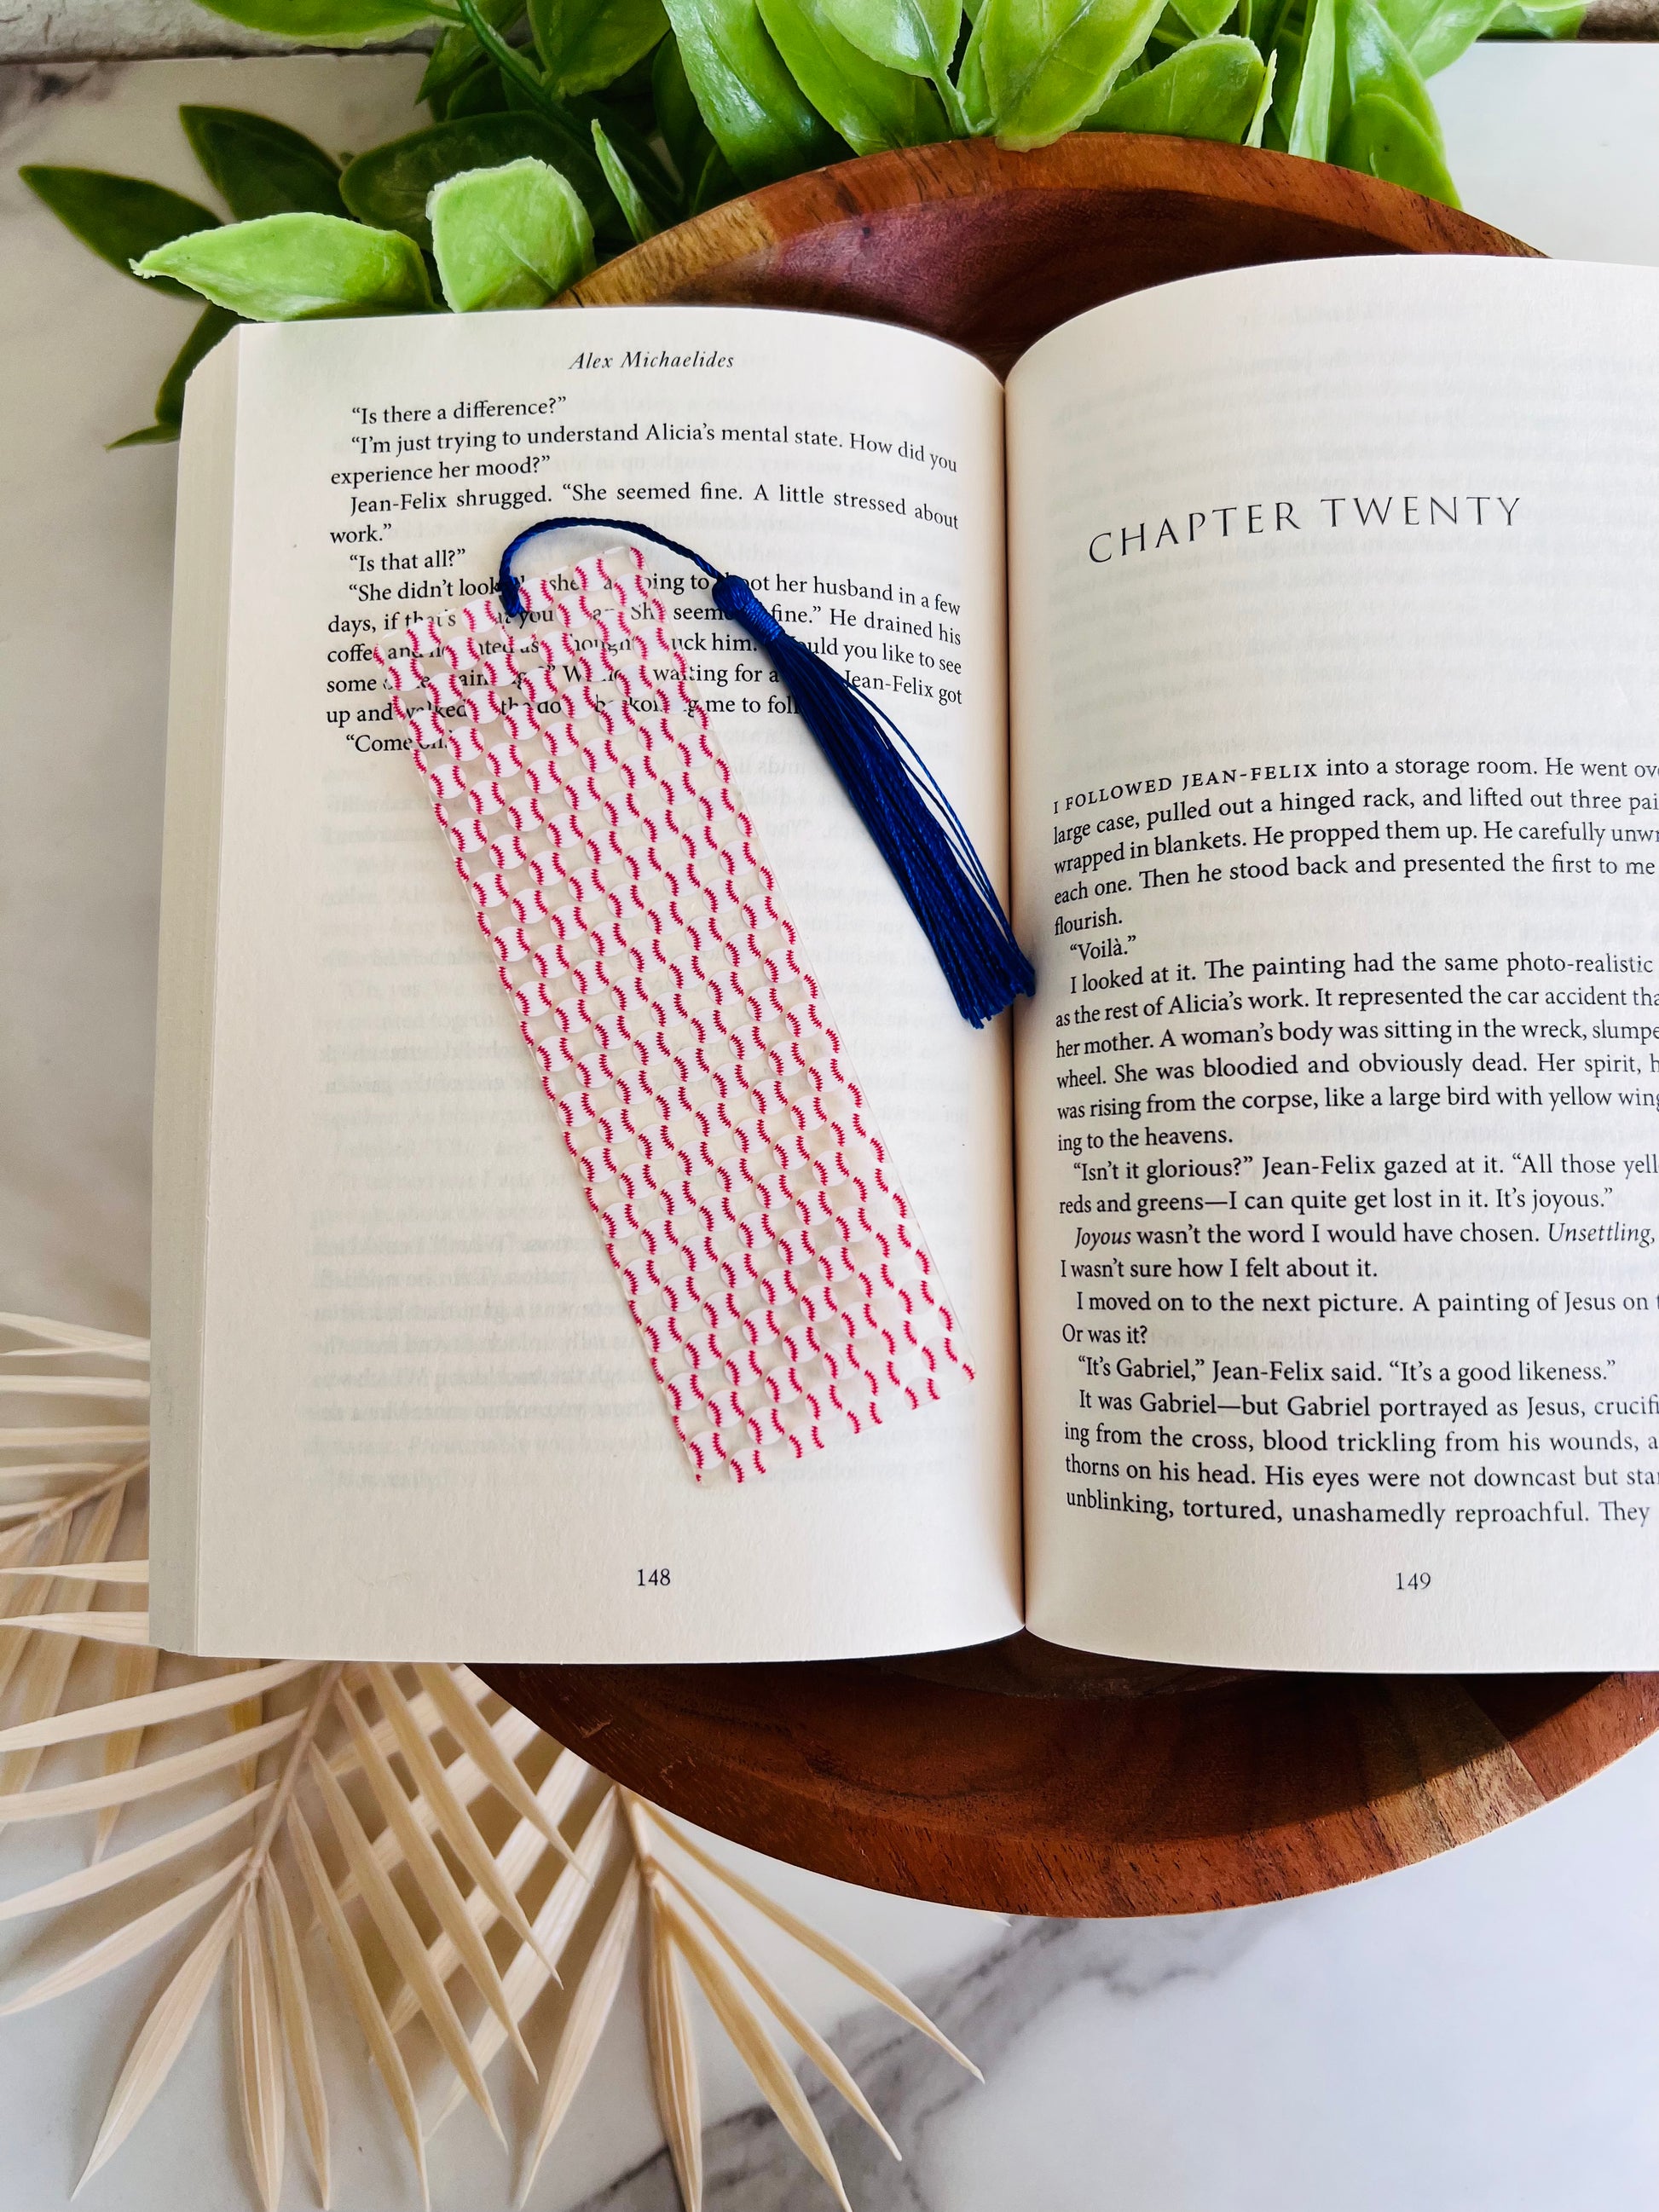 Alex Michaelides
“Is there a difference?”
“I’m just trying to understand Alicia’s mental state. How did you
experience her mood?”
Jean-Felix shrugged. “She seemed fine. A little stressed about
work.”
“Is that all?”
“She didn’t look she going to her husband in a few
days, if that’s you She seemed fine.” He drained his
coffee and as though him. you like to see
some waiting for a Jean-Felix got
up and walked the me to
“Come on.
148
CHAPTER TWENTY
I FOLLOWED JEAN-FELIX into a storage room. He went
large case, pulled out a hinged rack, and lifted out three
wrapped in blankets. He propped them up. He carefully
each one. Then he stood back and presented the first to me
flourish.
“Voilà.”
I looked at it. The painting had the same photo-realistic
as the rest of Alicia’s work. It represented the car accident
her mother. A woman’s body was sitting in the wreck,
wheel. She was bloodied and obviously dead. Her spirit,
was rising from the corpse, like a large bird with yellow
ing to the heavens.
“Isn’t it glorious?” Jean-Felix gazed at it. “All those
reds and greens—I can quite get lost in it. It’s joyous.”
Joyous wasn’t the word I would have chosen. Unsettling,
I wasn’t sure how I felt about it.
I moved on to the next picture. A painting of Jesus on
Or was it?
“It’s Gabriel,” Jean-Felix said. “It’s a good likeness.”
It was Gabriel—but Gabriel portrayed as Jesus,
ing from the cross, blood trickling from his wounds,
thorns on his head. His eyes were not downcast but
unblinking, tortured, unashamedly reproachful. They
149